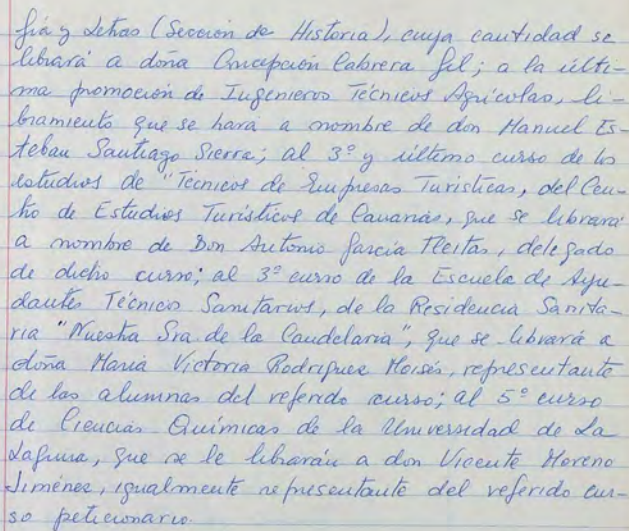 fía y Letras (Sección de Historia), cuya cantidad se
librará a doña Concepción Cabrera Gil; a la últi-
ma promoción de Ingenieros Técnicos Agrícolas, li-
bramiento que se hará a nombre de don Manuel Es-
teban Santiago Sierra; al 3º y último curso de los
estudios de "Técnicos de Empresas Turísticas, del Cen-
tro de Estudios Turísticos de Canarias, que se librará
a nombre de Don Antonio García Fleitas, delegado
de dicho curso; al 3º curso de la Escuela de Ayu-
dantes Técnicos Sanitarios, de la Residencia Sanita-
ria "Nuestra Sra. de la Candelaria", que se librará a
doña María Victoria Rodríguez Moisés, representante
de las alumnas del referido curso; al 5º curso
de Ciencias Químicas de la Universidad de La
Laguna, que se le librarán a don Vicente Moreno
Jiménez, igualmente representante del referido cur-
so peticionario.